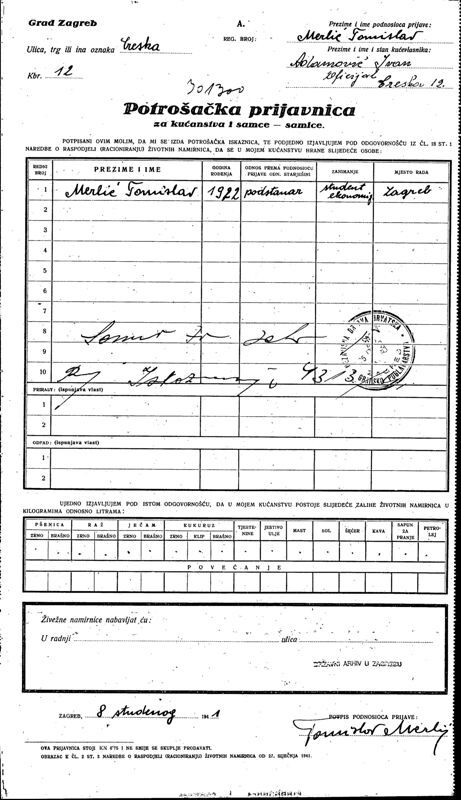 Grad Zagreb
A.
Prezime i ime podnosioca prijave:
Ulica, trg ili ina oznaka Creska
REG. BROJ:
Merlić Tomislav
Prezime i ime i stan kućevlasnika:
Kbr. 12
Adamović Ivan
Creska 12.
301300
Potrošačka prijavnica
za kućanstva i samce — samice.
POTPISANI OVIM MOLIM, DA MI SE IZDA POTROŠAČKA ISKAZNICA, TE PODJEDNO IZJAVLJUJEM POD ODGOVORNOŠĆU IZ ČL. 18 ST. 1
NAREDBE O RASPODJELI (RACIONIRANJU) ŽIVOTNIH NAMIRNICA, DA SE U MOJEM KUĆANSTVU HRANE SLIJEDEĆE OSOBE:
REDNI BROJ PREZIME I IME GODINA ROĐENJA ODNOS PREMA PODNOSIOCU PRIJAVE ODN. STARJEŠINI ZANIMANJE MJESTO RADA
1 Merlić Tomislav 1922 podstanar student ekonomije Zagreb
2
3
4
5
6
7
8
9
10
PRIRAST: (ispunjava vlast)
1
2
OTPAD: (ispunjava vlast)
1
2
UJEDNO IZJAVLJUJEM POD ISTOM ODGOVORNOŠĆU, DA U MOJEM KUĆANSTVU POSTOJE SLIJEDEĆE ZALIHE ŽIVOTNIH NAMIRNICA U
KILOGRAMIMA ODNOSNO LITRAMA:
PŠENICA RAŽ JEČAM KUKURUZ TJESTENINE JESTIVO ULJE MAST SOL ŠEĆER KAVA SAPUN ZA PRANJE PETROLEJ
ZRNO BRAŠNO ZRNO BRAŠNO ZRNO BRAŠNO ZRNO KLIP BRAŠNO
POVEĆANJE
Živežne namirnice nabavljat ću:
U radnji ulica
DRŽAVNI ARHIV U ZAGREBU
ZAGREB, 8 studenog 1941
POTPIS PODNOSIOCA PRIJAVE:
Tomislav Merlić
OVA PRIJAVNICA STOJI KN 0'75 I NE SMIJE SE SKUPLJE PRODAVATI.
OBRAZAC K ČL. 2 ST. 2 NAREDBE O RASPODJELI (RACIONIRANJU) ŽIVOTNIH NAMIRNICA OD 27. SIJEČNJA 1941.